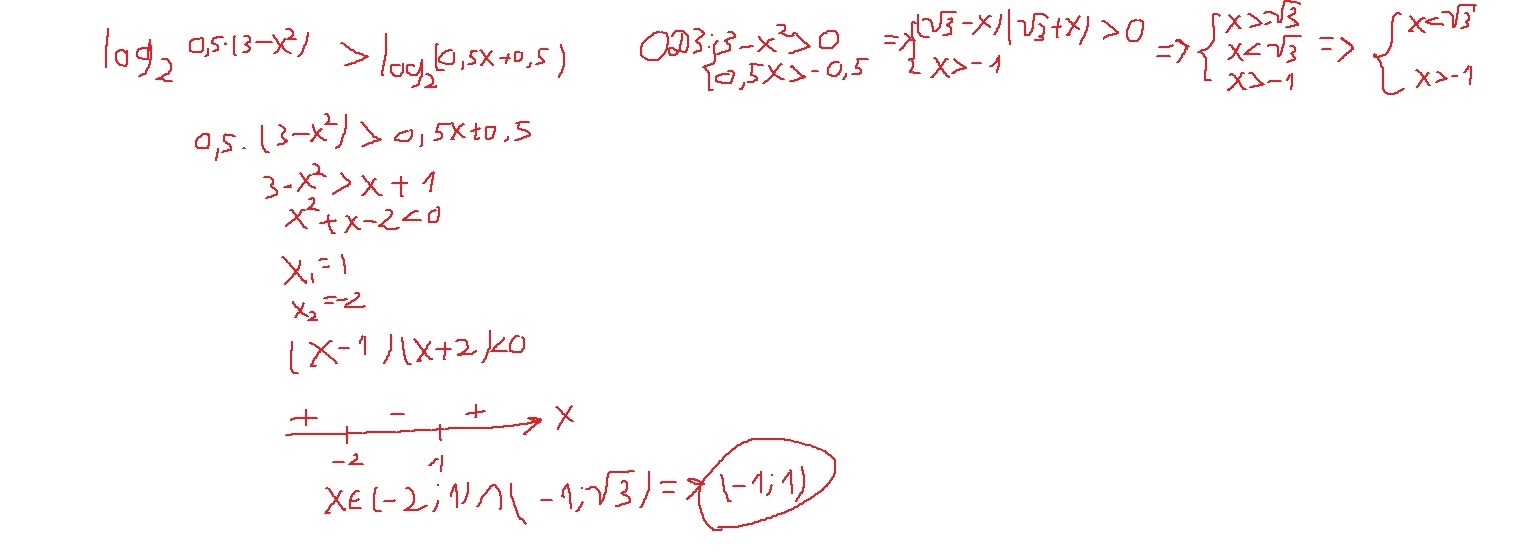 log₂ 0,5·(3-x²) > log₂(0,5x+0,5)
ОДЗ: { 3-x²>0 ; 0,5x>-0,5 => { (√3-x)(√3+x)>0 ; x>-1 => { x>-√3 ; x<√3 ; x>-1 => { x<√3 ; x>-1
0,5·(3-x²)>0,5x+0,5
3-x²>x+1
x²+x-2<0
x₁=1
x₂=-2
(x-1)(x+2)<0
+ - + x
-2 1
x∈(-2;1)∩(-1;√3)=>(-1;1)